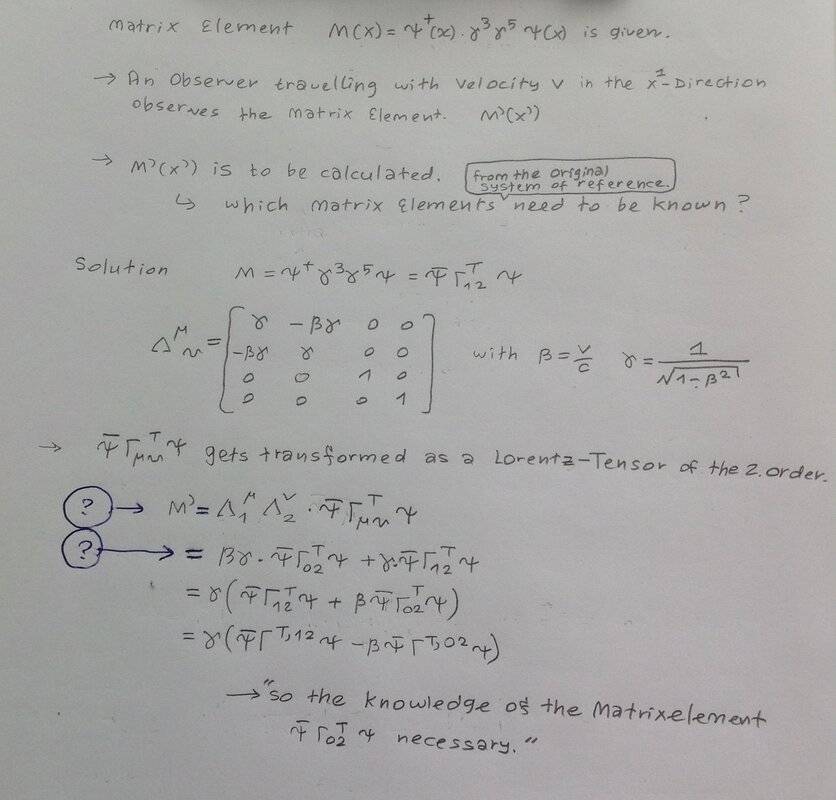 Matrix Element M(x) = ψ⁺(x) . γ³γ⁵ ψ(x) is given.
→ An Observer travelling with velocity v in the x¹-Direction
observes the matrix Element. M'(x')
→ M'(x') is to be calculated.
from the original
system of reference.
↳ which matrix Elements need to be known?
Solution M = ψ⁺γ³γ⁵ψ = ψ̄ Γ₁₂ᵀ ψ
Λ^μ_ν = [ γ -βγ 0 0
-βγ γ 0 0
0 0 1 0
0 0 0 1 ]
with β = v/c γ = 1/√(1-β²)
→ ψ̄ Γ_μν^T ψ gets transformed as a Lorentz-Tensor of the 2. order.
? → M' = Λ₁^μ Λ₂^ν · ψ̄ Γ_μν^T ψ
? → = βγ · ψ̄ Γ₀₂ᵀ ψ + γ·ψ̄ Γ₁₂ᵀ ψ
= γ(ψ̄ Γ₁₂ᵀ ψ + β ψ̄ Γ₀₂ᵀ ψ)
= γ(ψ̄ Γ^T,12 ψ - β ψ̄ Γ^T,02 ψ)
→ "so the knowledge of the Matrixelement
ψ̄ Γ₀₂ᵀ ψ necessary."